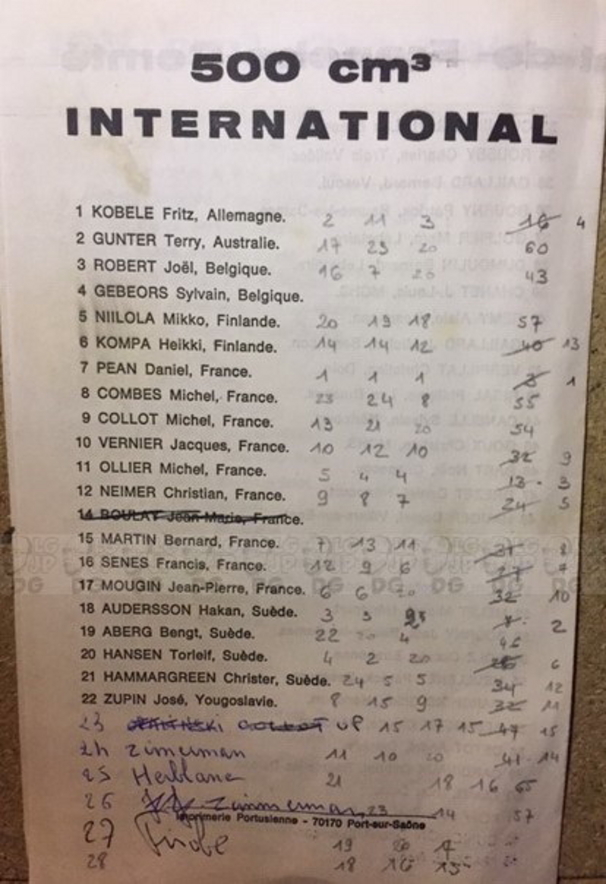 500 cm³
INTERNATIONAL
1 KOBELE Fritz, Allemagne. 2 11 3 16 4
2 GUNTER Terry, Australie. 17 23 20 60
3 ROBERT Joël, Belgique. 16 7 20 43
4 GEBEORS Sylvain, Belgique.
5 NIILOLA Mikko, Finlande. 20 19 18 57
6 KOMPA Heikki, Finlande. 14 14 12 40 13
7 PEAN Daniel, France. 1 1 1 3 1
8 COMBES Michel, France. 23 24 8 55
9 COLLOT Michel, France. 13 21 20 54
10 VERNIER Jacques, France. 10 12 10 32 9
11 OLLIER Michel, France. 5 4 4 13 - 3
12 NEIMER Christian, France. 9 8 7 24 5
14 BOULAY Jean-Marie, France.
15 MARTIN Bernard, France. 7 13 11 31 8
16 SENES Francis, France. 12 9 6 27 7
17 MOUGIN Jean-Pierre, France. 6 6 20 32 10
18 AUDERSSON Hakan, Suède. 3 3 2
19 ABERG Bengt, Suède. 22 20 4 46
20 HANSEN Torleif, Suède. 4 2 20 26 6
21 HAMMARGREEN Christer, Suède. 24 5 5 34 12
22 ZUPIN José, Yougoslavie. 8 15 9 32 11
23 15 17 15 47 15
24 Zimerman 11 10 20 41 - 14
25 21 18 16 65
26 Zimmerman 23 14 57
Imprimerie Portusienne - 70170 Port-sur-Saône
27 19 20
28 18 16 15
DG DG DG DG DG